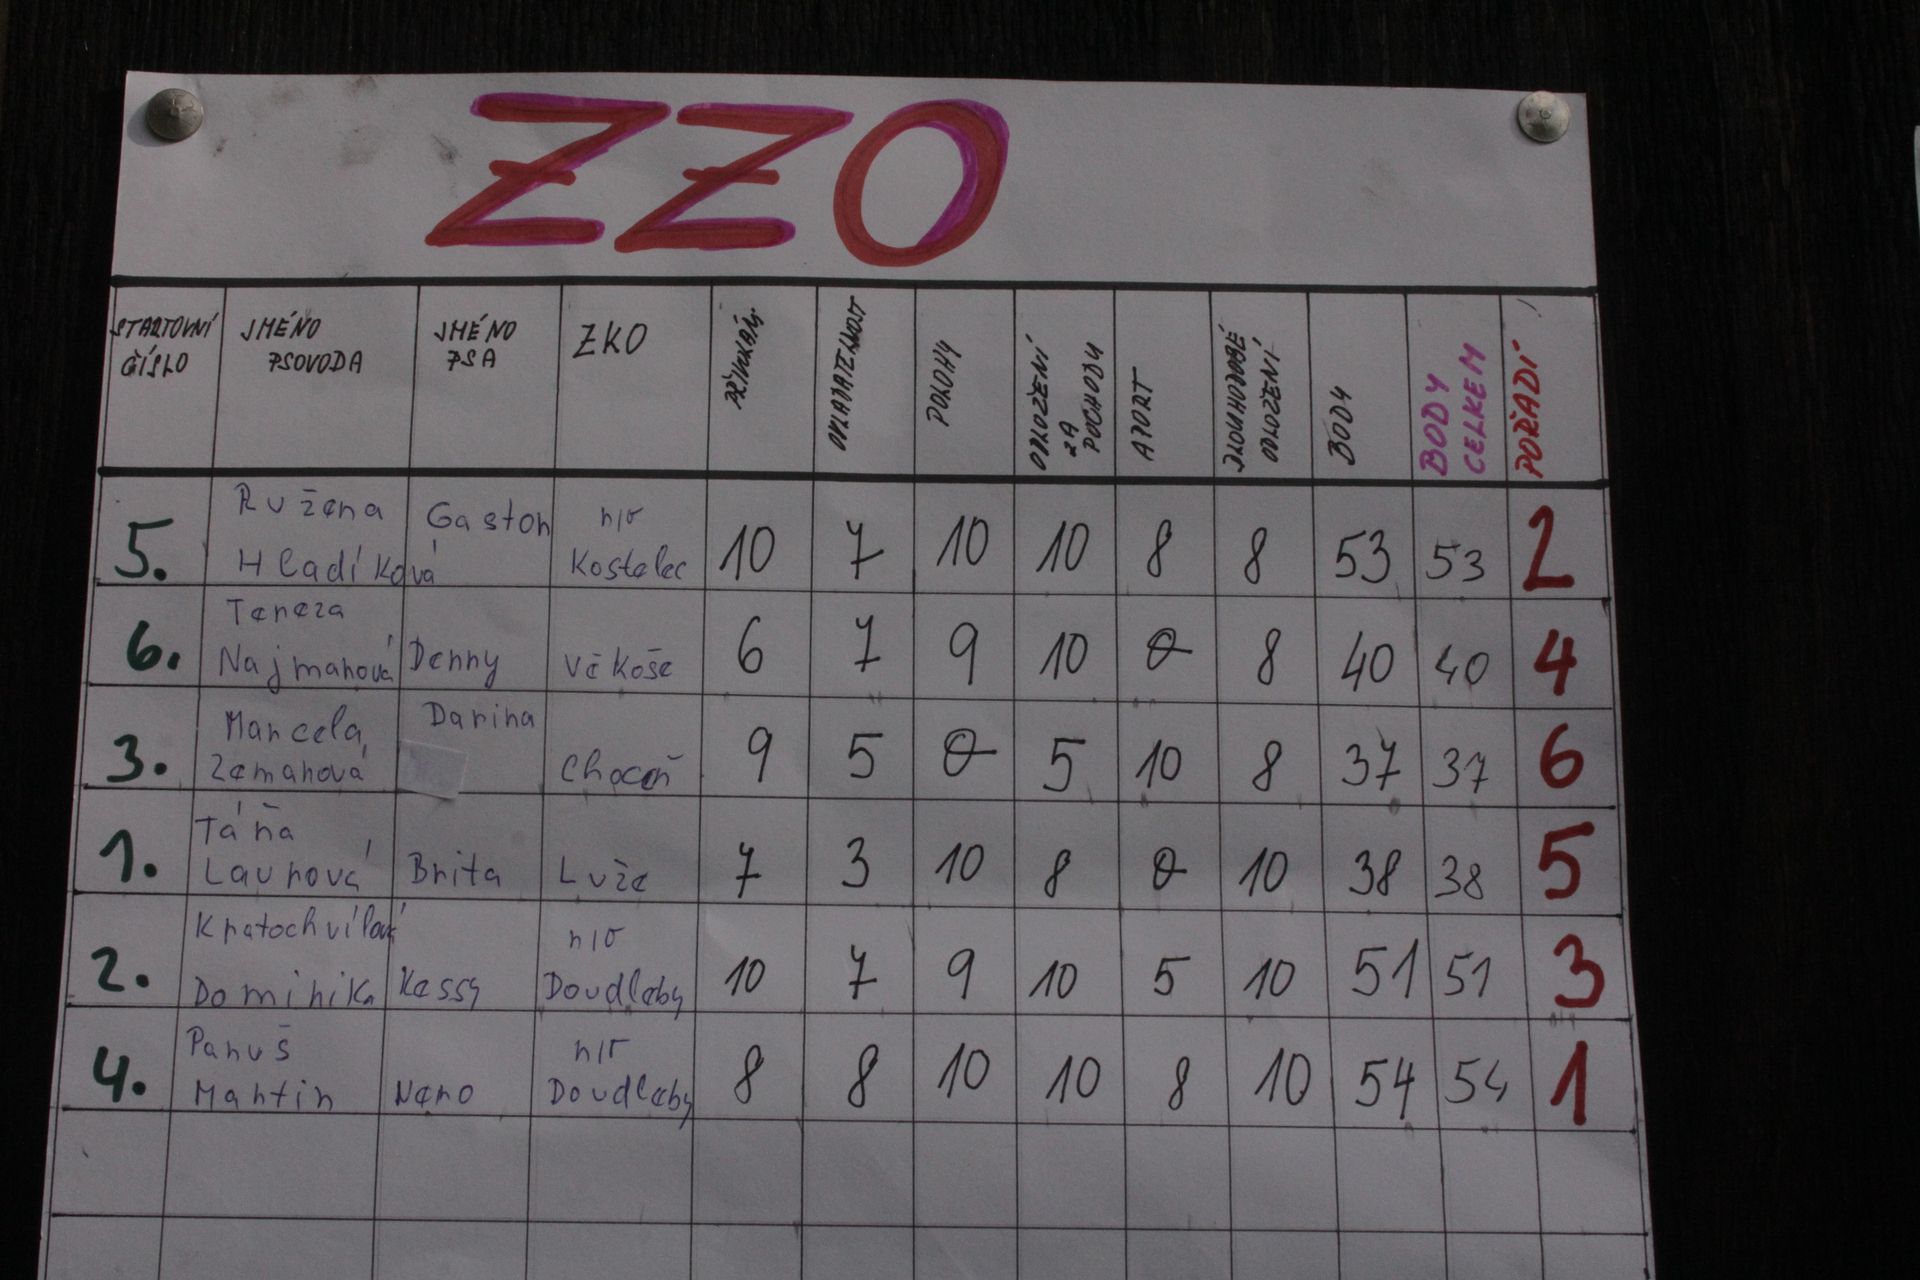 ZZO
STARTOVNÍ ČÍSLO JMÉNO PSOVODA JMÉNO PSA ZKO PŘIVOLÁNÍ OVLADATELNOST POLOHY ODLOŽENÍ ZA POCHODU APORT DLOUHODOBÉ ODLOŽENÍ BODY BODY CELKEM POŘADÍ
5. Ružena Hladíková Gaston n/O Kostelec 10 7 10 10 8 8 53 53 2
6. Tereza Najmanová Denny Věkoše 6 7 9 10 0 8 40 40 4
3. Marcela Zemanová Darina Choceň 9 5 0 5 10 8 37 37 6
1. Táňa Laurová Brita Luže 7 3 10 8 0 10 38 38 5
2. Kratochvílová Dominika Kessy n/O Doudleby 10 7 9 10 5 10 51 51 3
4. Panuš Martin Nero n/O Doudleby 8 8 10 10 8 10 54 54 1